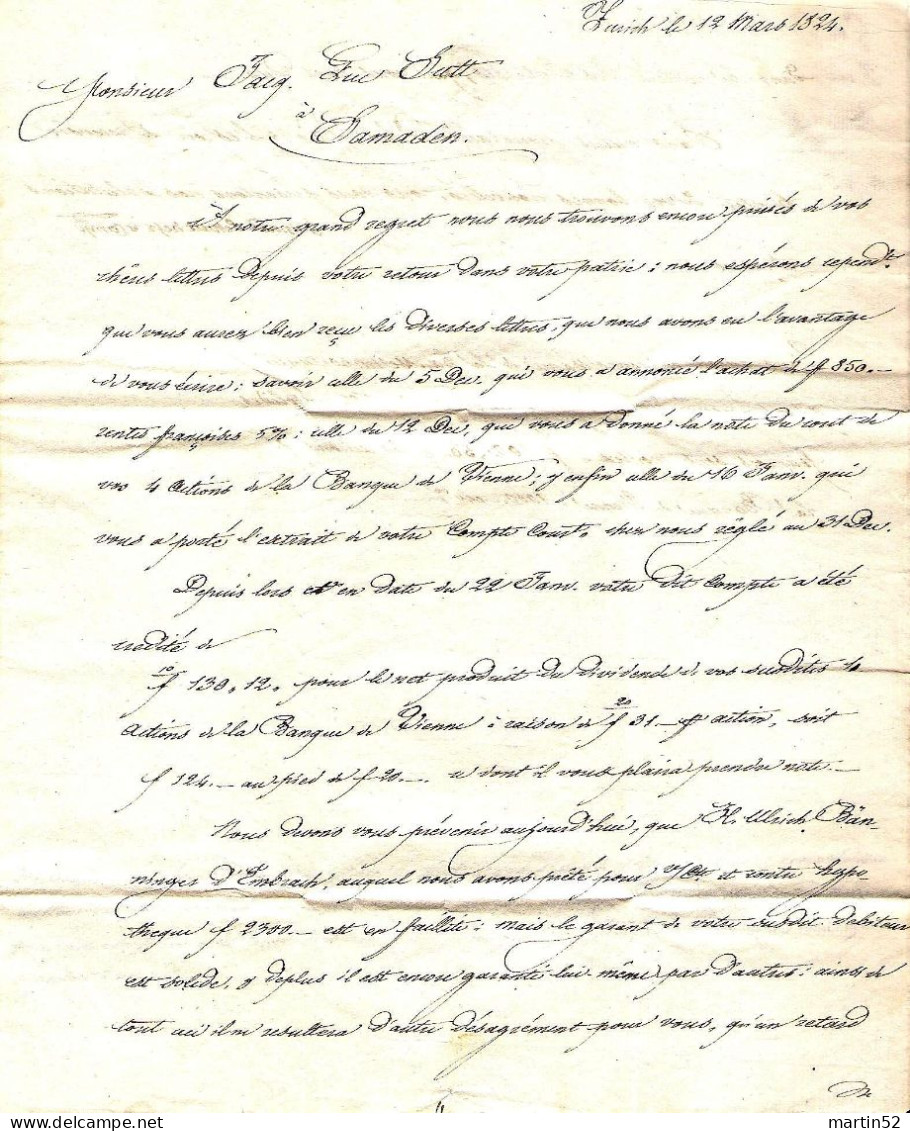 Zurich le 12 Mars 1824.
Monsieur Jacq. Luc Sutt
à
Samaden.
A notre grand regret nous nous trouvons encore privés de vos
chères lettres depuis votre retour dans votre patrie; nous espérons cependt.
que vous aurez bien reçu les diverses lettres, que nous avons eu l'avantage
de vous écrire; savoir celle du 5 Dec. qui vous a annoncé l'achat de ff 850.—
rentes françoises 5%; celle du 12 Dec, que vous a donné la note du cout de
vos 4 Actions de la Banque de Vienne, & enfin celle du 16 Janv. qui
vous a porté l'extrait de votre Compte Court. chez nous réglé au 31 Dec.
Depuis lors et en date du 22 Janv. votre dit Compte a été
credité de
f 130.12. pour le net produit du dividende de vos susdites 4
Actions de la Banque de Vienne à raison de f 31.— action, soit
f 124.— au pied de f 20.—. ce dont il vous plaira prendre note.—
Nous devons vous prévenir aujourd'hui, que H. Ulrich Bän-
ninger d'Embrach, auquel nous avons prêté pour et contre hypo-
theque f 2300.— est en faillite; mais le garant de votre susdit debiteur
est solide, & deplus il est encore garanti lui-même par d'autres; ainsi de
tout ceci il ne resultera d'autre désagrément pour vous, qu'un retard
martin52